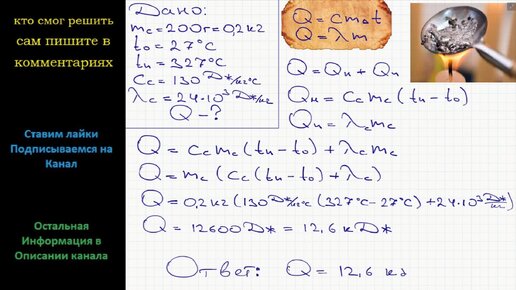 кто смог решить
сам пишите в
комментариях
Ставим лайки
Подписываемся на
Канал
Остальная
Информация в
Описании канала
Дано:
mc = 200г = 0,2 кг
t0 = 27°C
tп = 327°C
Cc = 130 Дж/кг°C
λc = 24·10³ Дж/кг
Q - ?
Q = cmΔt
Q = λm
Q = Qн + Qп
Qн = Cc mc (tп - t0)
Qп = λc mc
Q = Cc mc (tп - t0) + λc mc
Q = mc (Cc (tп - t0) + λc)
Q = 0,2 кг (130 Дж/кг°C (327°C - 27°C) + 24·10³ Дж/кг)
Q = 12600 Дж = 12,6 кДж
Ответ: Q = 12,6 кД